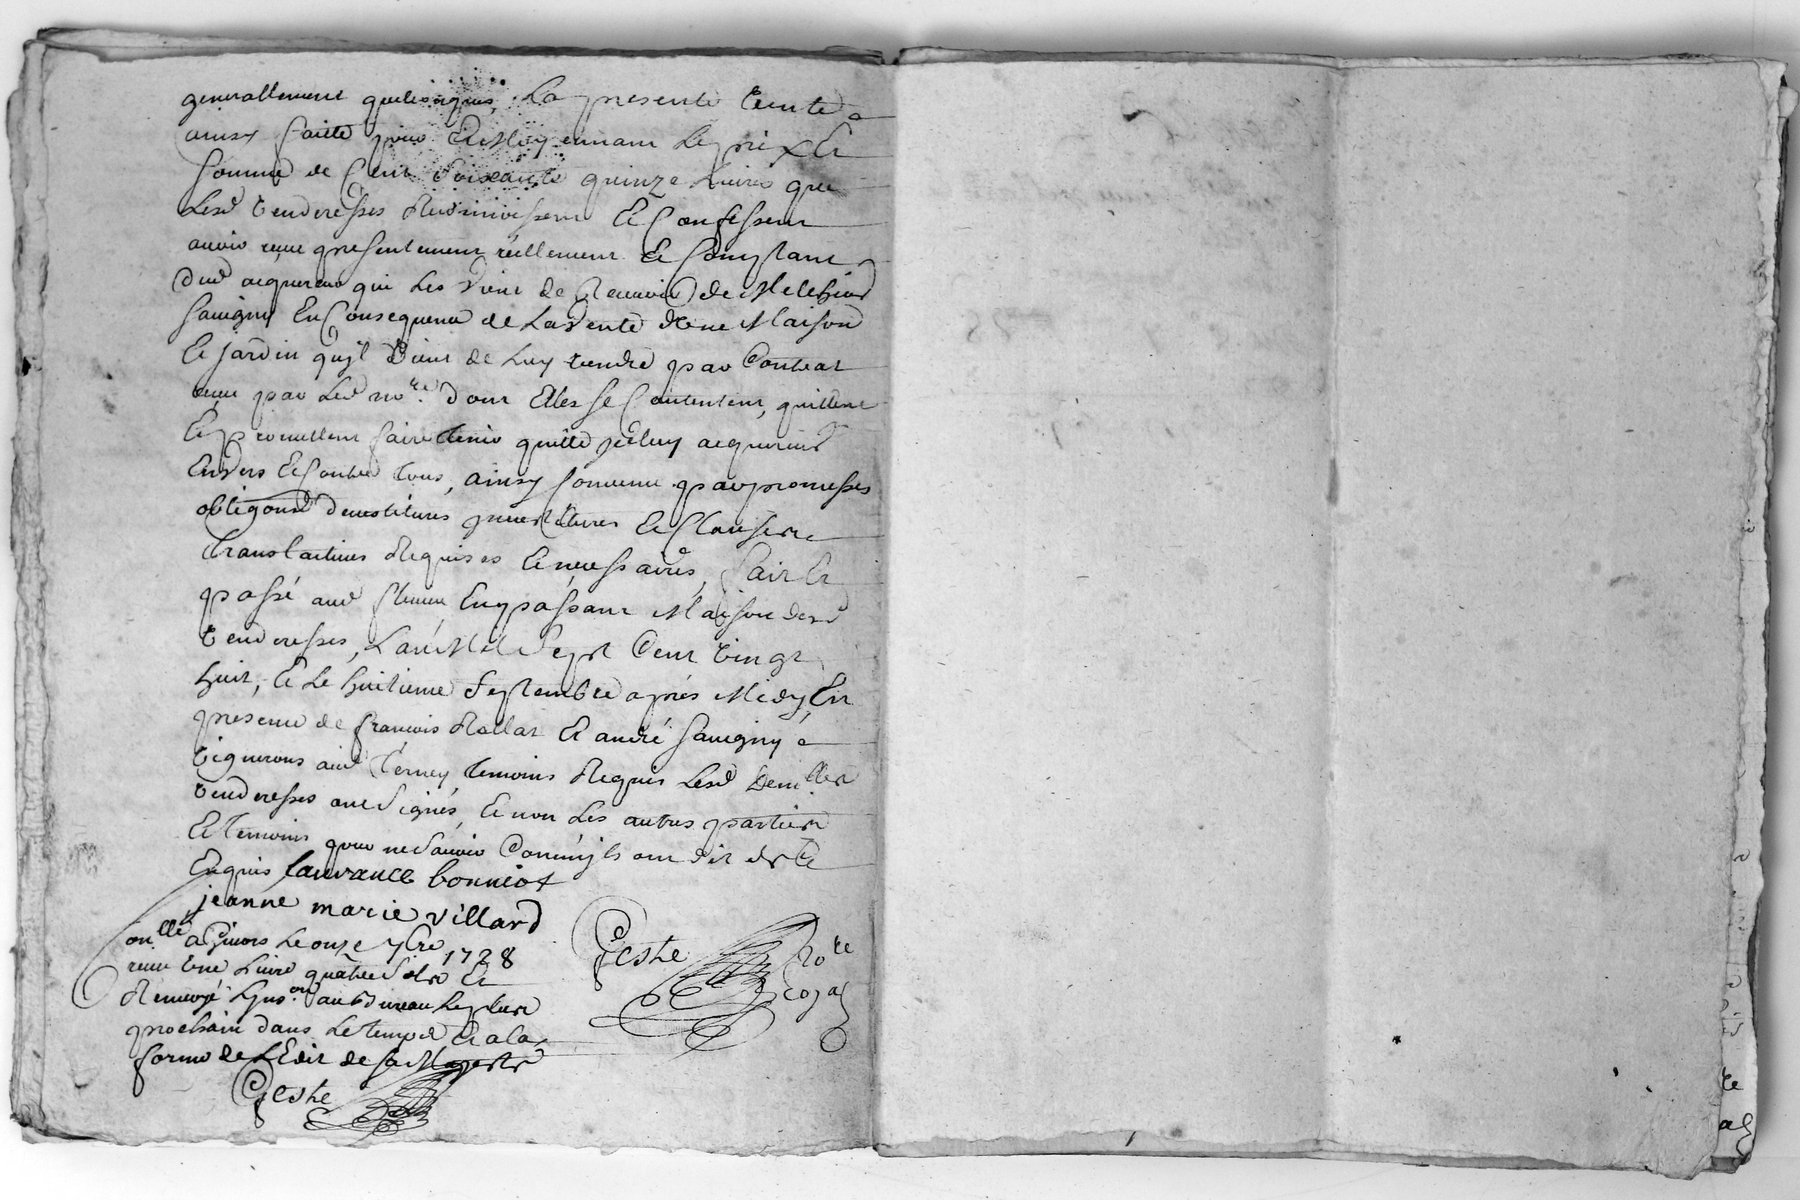 generallement quelconques, La presente vente
ainsy faitte pour Et Moyennant Le prix Et
somme de Cent soixante quinze Livres que
Lesd venderesses Reconnoissent Et Confessent
avoir receu presentement reellement Et Comptant
dud acquereur qui Les vient de Recevoir de Melchior
Savigny En Consequence de La vente d'une Maison
Et jardin qu'jl vient de Luy vendre par Contrat
receu par Led no.re dont Elles se Contentent, quittent
Et promettent faire tenir quitte jceluy acquereur
Envers Et Contre tous, ainsy Convenu par promesses
obligons devestitures jnvestitures Et Clauses
translatives Requises Et necessaires, fait Et
passé aud Maison desd
venderesses, L'an Mil Sept Cent vingt
huit, Et Le huitieme Septembre après Midy, En
presence de françois Rollat Et andré Savigny
vignerons aud Ternay temoins Requis Lesd Dem.lles
venderesses ont Signés, Et non Les autres parties
Et temoins pour ne Sçavoir Comm'jls ont dit de ce
Enquis laurance bonniot
jeanne marie villard
on.llé a Givors Le onze 7bre 1728
receu Une Livre quatre Sols Et
Renvoyé L'jns.on au Bureau Le plus
prochain dans Le temps Et a la
forme de L'Edit de Sa Majesté
Geste No.re
Royal
Geste